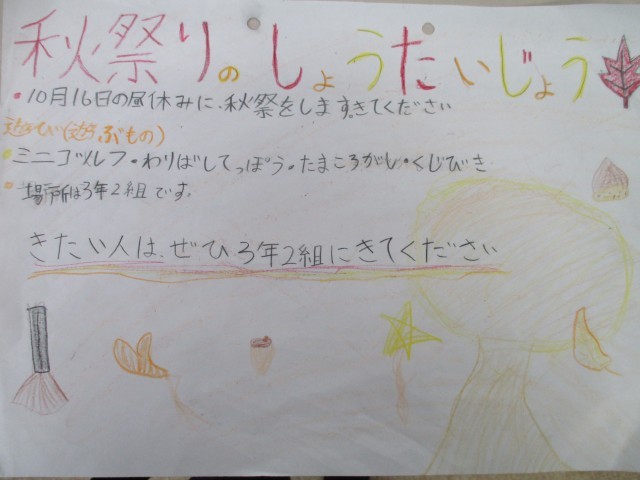 秋祭りのしょうたいじょう
・10月16日の昼休みに、秋祭をします。きてください
遊び(遊ぶもの)
・ミニゴルフ・わりばしてっぽう・たまころがし・くじびき
・場所は3年2組です。
きたい人は、ぜひ、3年2組にきてください